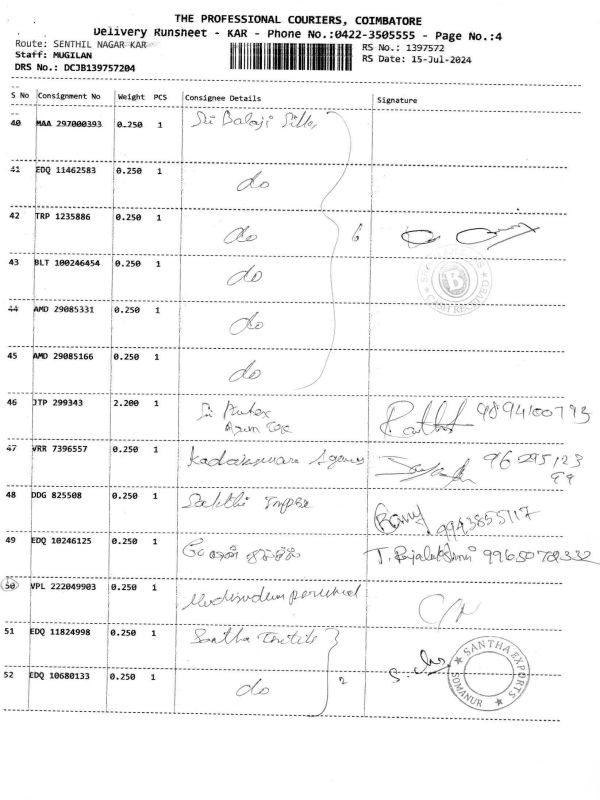 THE PROFESSIONAL COURIERS, COIMBATORE
Delivery Runsheet - KAR - Phone No.:0422-3505555 - Page No.:4
Route: SENTHIL NAGAR KAR
RS No.: 1397572
Staff: MUGILAN
RS Date: 15-Jul-2024
DRS No.: DCJB139757204
S No Consignment No Weight PCS Consignee Details Signature
40 MAA 297000393 0.250 1 Sri Balaji
41 EDQ 11462583 0.250 1 do
42 TRP 1235886 0.250 1 do 6
43 BLT 100246454 0.250 1 do
CASH RECEIVED
44 AMD 29085331 0.250 1 do
45 AMD 29085166 0.250 1 do
46 JTP 299343 2.200 1 Sri 9894100793
47 VRR 7396557 0.250 1
48 DDG 825508 0.250 1 Sakthi 9943855117
49 EDQ 10246125 0.250 1 T.
50 VPL 222049903 0.250 1
51 EDQ 11824998 0.250 1 Santha
52 EDQ 10680133 0.250 1 do 2
SANTHA EXPORTS
SOMANUR